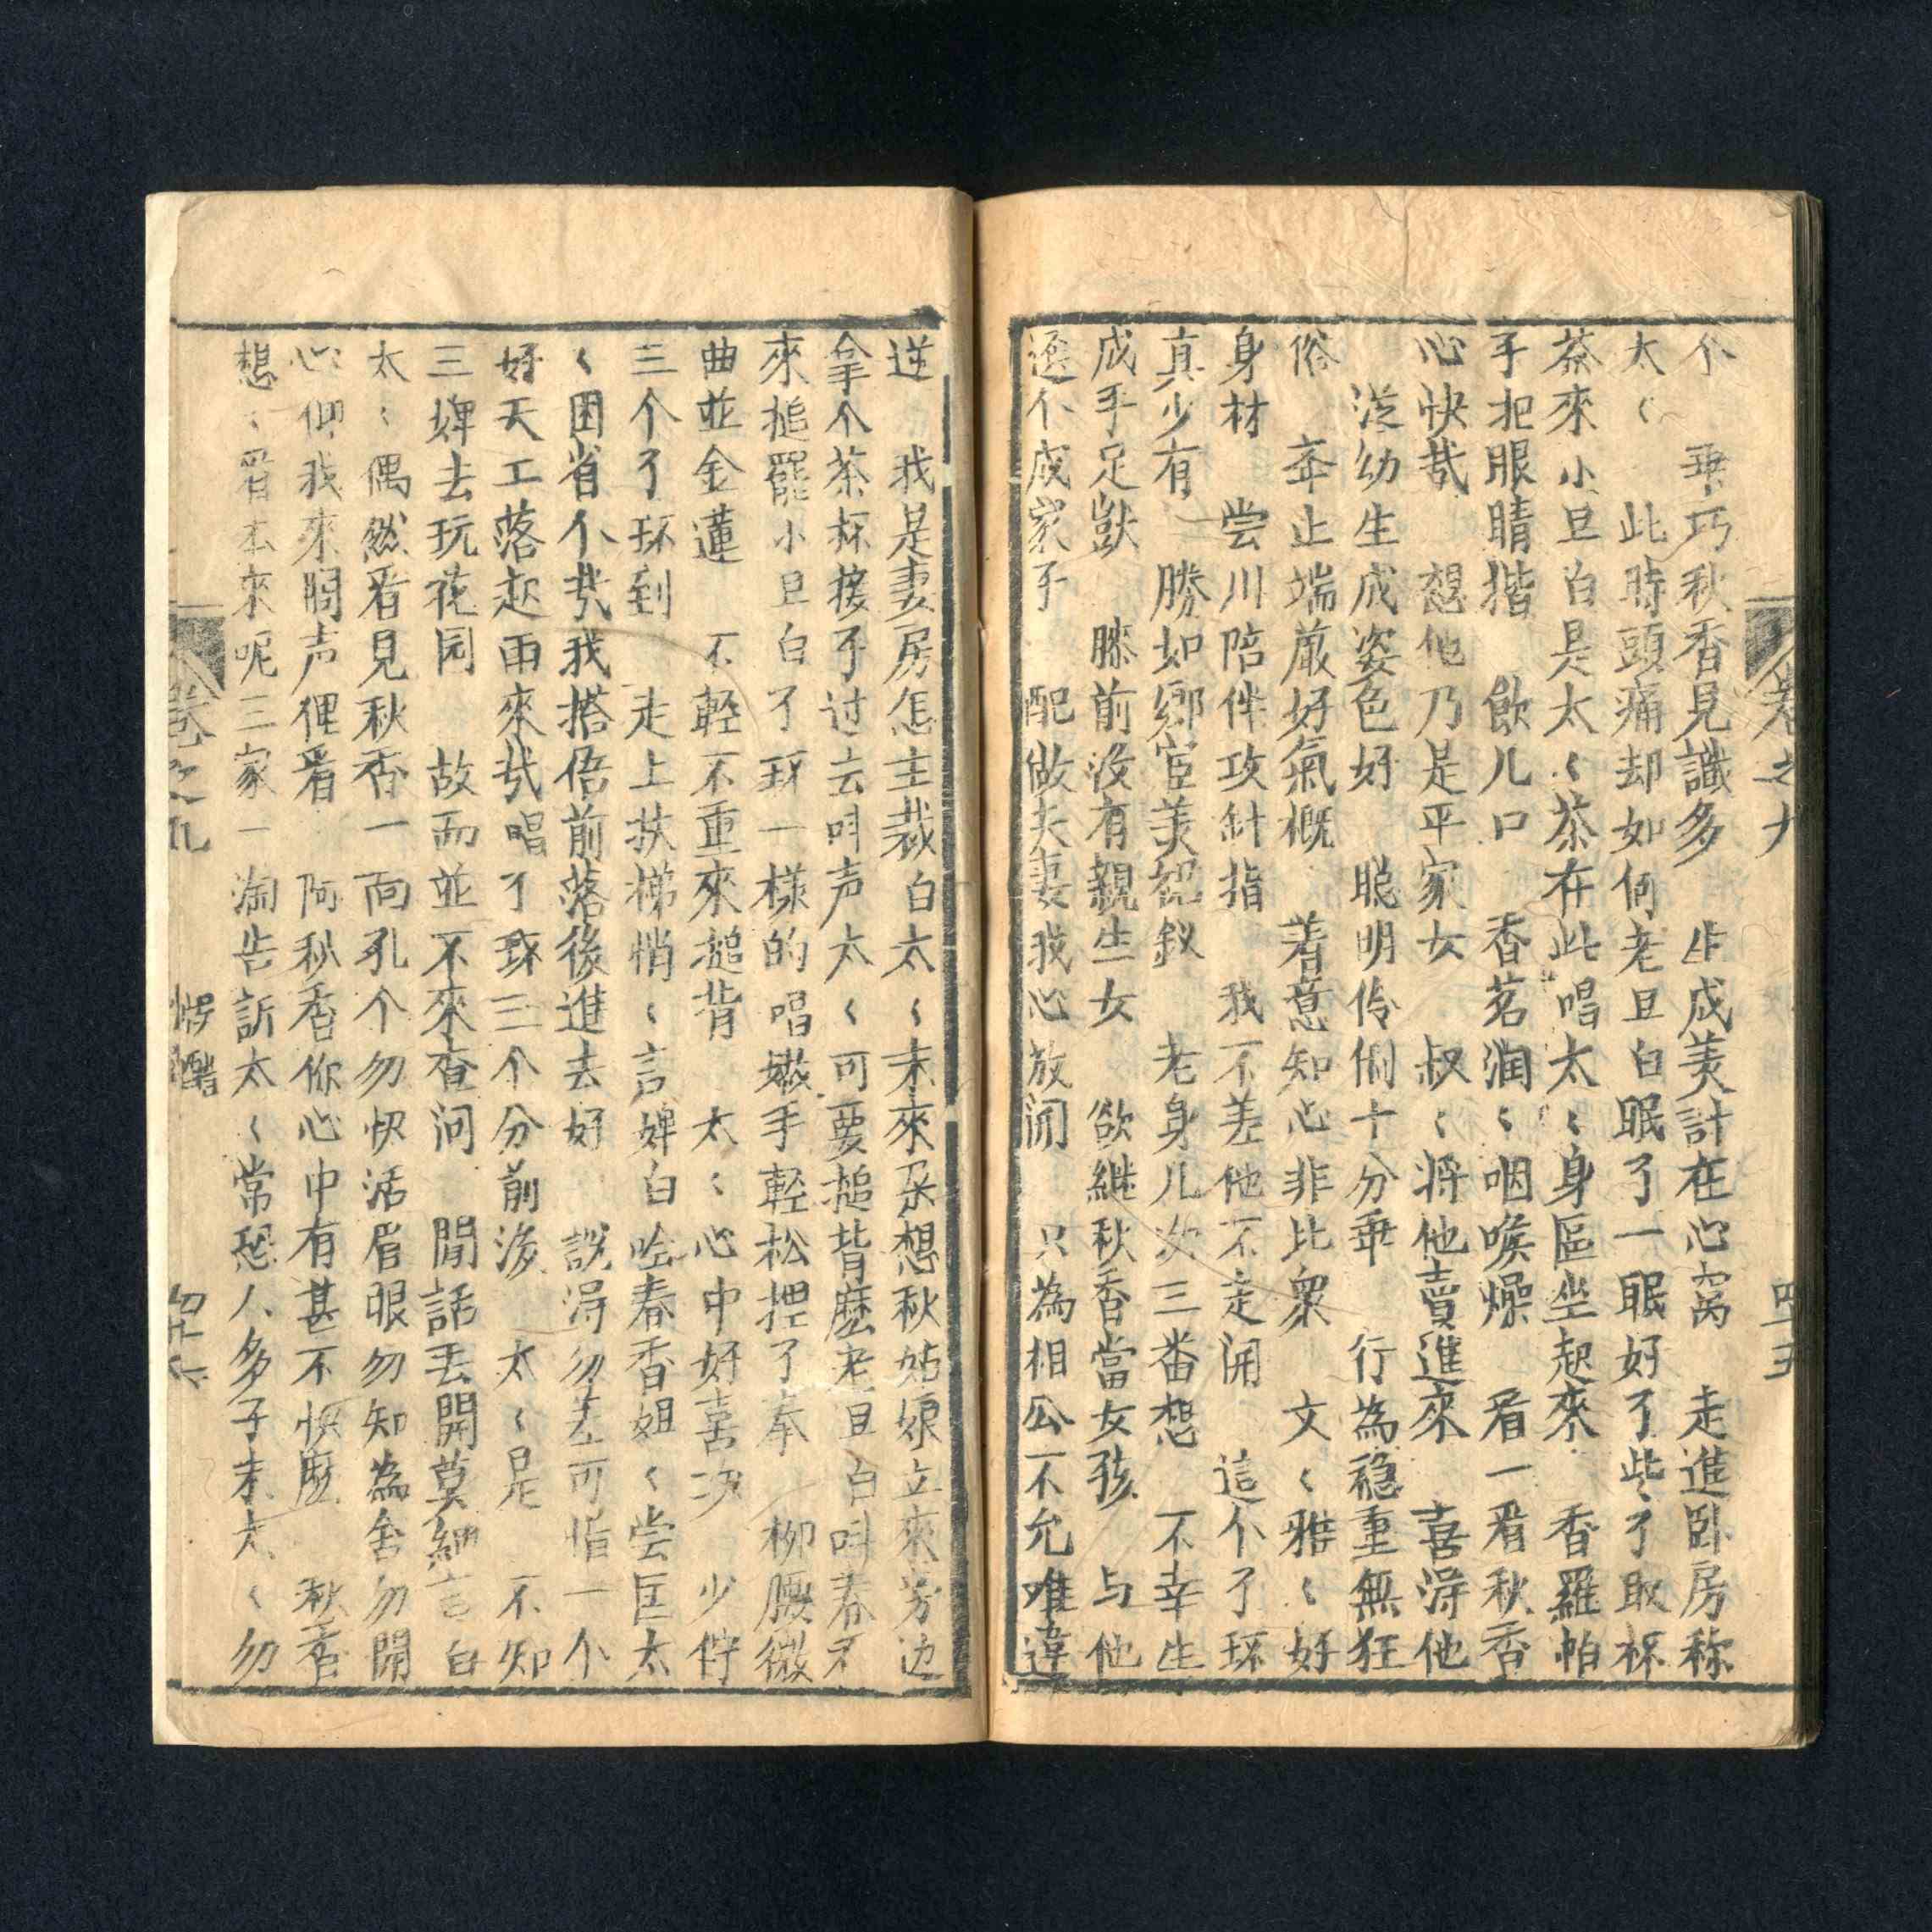 卷之九 四十五
个 乖巧秋香見識多 生成美計在心窩 走進卧房称
太〱 此時頭痛却如何老旦白眠了一眠好了些了取杯
茶來小旦白是太〱茶在此唱太〱身區坐起來 香羅帕
手把眼睛揩 飲几口 香茗润〱咽喉燥 看一看秋香
心快哉 想他乃是平家女 叔〱将他賣進來 喜淂他
従幼生成姿色好 聡明伶俐十分乖 行為穏重無狂
俗 㪯止端嚴好氣概 着意知心非比衆 文〱雅〱好
身材 尝川陪伴攻針指 我不差他不走開 這个了环
真少有 勝如鄉宦美裙釵 老身几次三番想 不幸生
成手足獃 膝前没有親生女 欲継秋香當女孩 与他
選个成家子 配做夫妻我心放開 只為相公不允唯違
逆 我是妻房怎主裁白太〱未來朶想秋姑娘立來旁边
拿个茶杯接子过去叫声太〱可要搥背麽老旦白叫春香
來搥罷小旦白了环一樣的唱嫩手輕松揑了拳 柳腰微
曲並金蓮 不輕不重來搥背 太〱心中好喜次 少停
三个了环到 走上扶梯悄〱言婢白唫春香姐〱尝匡太
〱困省个㢤我搭俉前落後進去好 説淂勿差可惜一个
好天工落起雨來㢤唱了环三个分前後 太〱是 不知
三婢去玩花园 故而並不來查问 閒話丟開莫細言白
太〱偶然看見秋香一面孔个勿快活眉眼勿知為舍勿開
心仰我來問声俚看 阿秋香你心中有甚不快麽 秋香
想〱看本來呢三家一淘告訴太〱常恐人多子末太〱勿
卷之九 悮醋 四十六